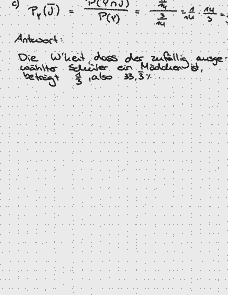 c) P_Y(J̅) = P(Y∩J̅) / P(Y) = 1/14 / 3/14 = 1/14 · 14/3 =
Antwort:
Die W'keit dass der zufällig ausge-
wählte Schüler ein Mädchen ist,
beträgt 1/3, also 33,3%